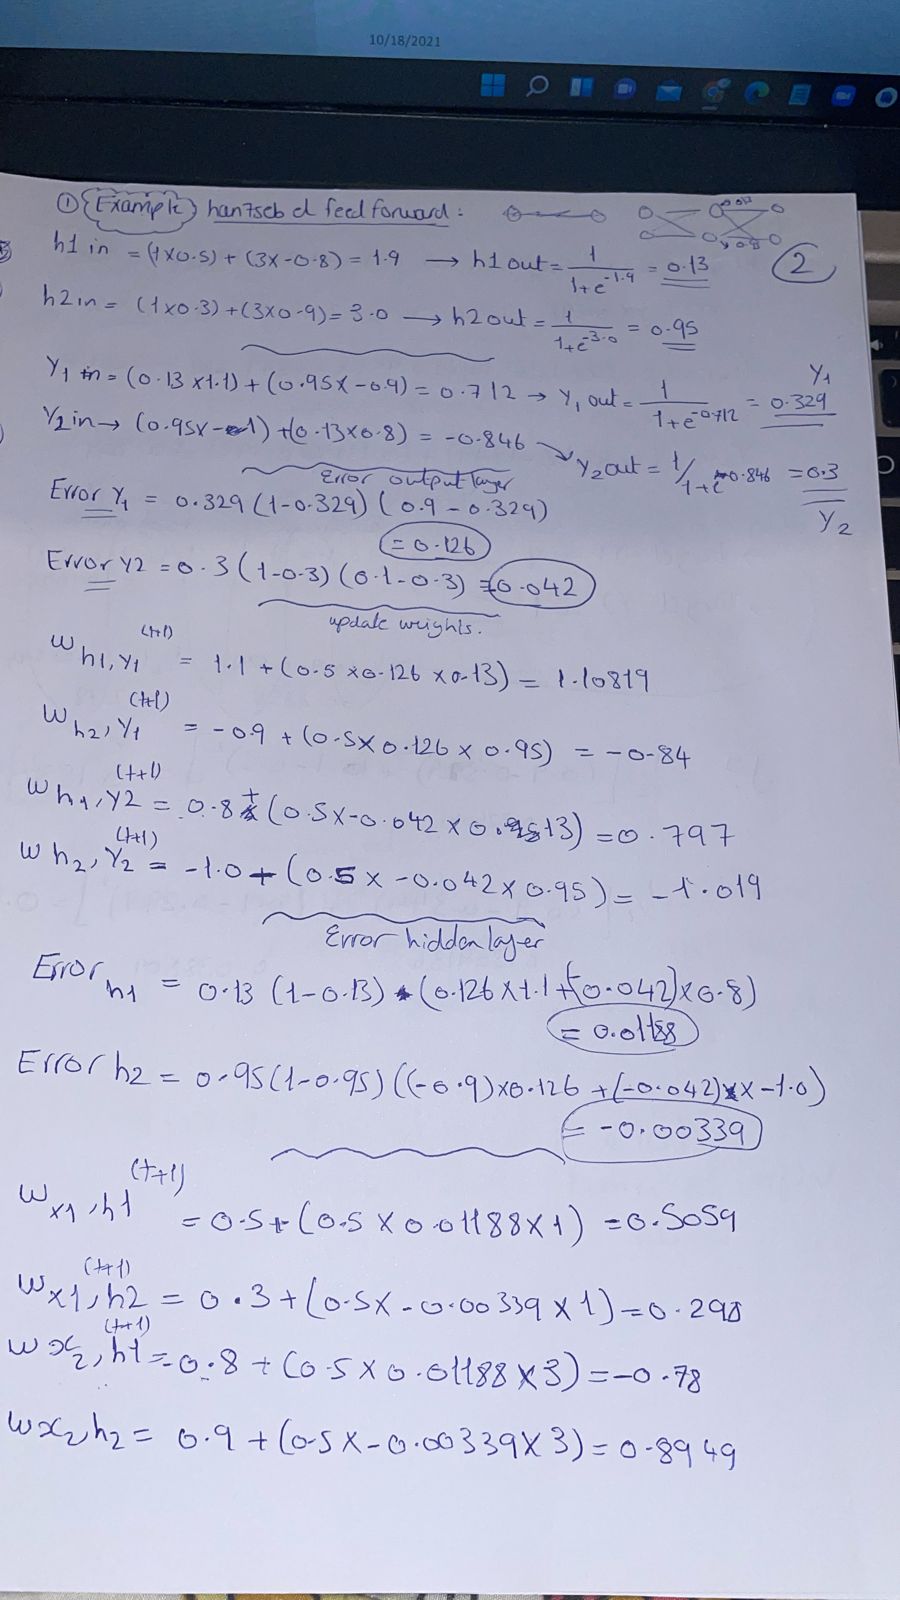 10/18/2021
① Example han7seb el feed forward:
2
h1 in = (1x0.5) + (3x-0.8) = 1.9 → h1 out = 1/1+e^-1.9 = 0.13
h2in = (1x0.3)+(3x0.9)= 3.0 → h2out = 1/1+e^-3.0 = 0.95
Y1 in = (0.13x1.1) + (0.95x-0.9) = 0.712 → Y1 out = 1/1+e^-0.712 = 0.329 Y1
Y2in → (0.95x-1) + (0.13x0.8) = -0.846 → Y2out = 1/1+e^0.846 = 0.3 Y2
Error output layer
Error Y1 = 0.329 (1-0.329) (0.9-0.329)
= 0.126
Error Y2 = 0.3 (1-0.3) (0.1-0.3) = 0.042
update weights.
W h1,Y1 (t+1) = 1.1 + (0.5 x 0.126 x 0.13) = 1.10819
W h2,Y1 (t+1) = -0.9 + (0.5x 0.126 x 0.95) = -0.84
W h1,Y2 (t+1) = 0.8 + (0.5x-0.042 x 0.13) = 0.797
W h2,Y2 (t+1) = -1.0 + (0.5 x -0.042 x 0.95) = -1.019
Error hidden layer
Error h1 = 0.13 (1-0.13) (0.126 x 1.1 + (-0.042) x 0.8)
= 0.01188
Error h2 = 0.95(1-0.95) ((-0.9)x0.126 + (-0.042) x -1.0)
= -0.00339
W x1,h1 (t+1) = 0.5+ (0.5 x 0.01188x1) = 0.5059
W x1,h2 (t+1) = 0.3 + (0.5x -0.00339 x 1) = 0.298
W x2,h1 (t+1) = -0.8 + (0.5 x 0.01188 x 3) = -0.78
W x2,h2 = 0.9 + (0.5x-0.00339x3) = 0.8949